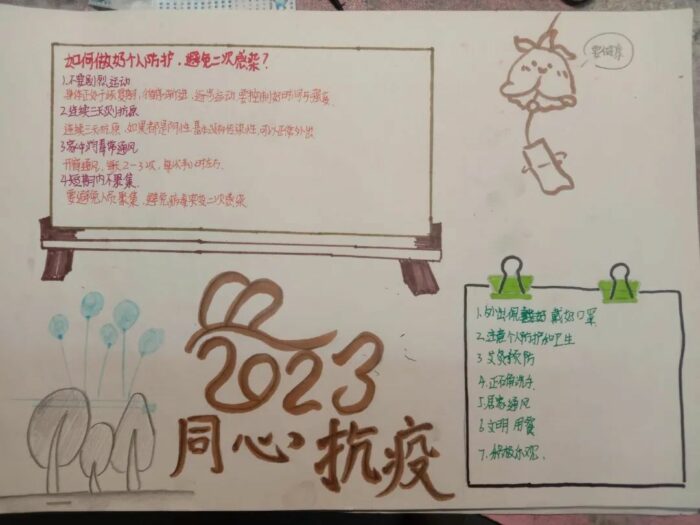 如何做好个人防护,避免二次感染?
1.不要剧烈运动
身体正处于恢复期,循序渐进,适当运动,要控制好时间与强度
2.连续三天测抗原
连续三天抗原,如果都是阴性,基本没有传染性,可以正常外出
3.家中勤开窗通风
开窗通风,每天2-3次,每次半小时左右.
4.短期内不聚集
要避免人员聚集,避免病毒突变二次感染
要健康
1.外出佩戴好口罩
2.注意个人防护和卫生
3.艾灸预防
4.正确洗手
5.居家通风
6.文明用餐
7.积极乐观.
2023
同心抗疫